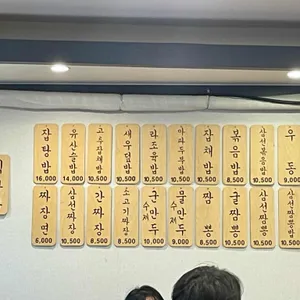 잡탕밥 16,000
유산슬밥 14,000
고추잡채밥 10,500
새우덮밥 10,500
라조육밥 10,500
마파두부밥 9,000
잡채밥 8,500
볶음밥 8,500
삼선볶음밥 10,500
우동
짜장면 6,000
삼선짜장 10,500
간짜장 8,500
소고기짜장 8,500
군만두 수저 10,000
물만두 수저 9,000
짬뽕 8,500
굴짬뽕 10,500
삼선짬뽕 10,500
삼선짬뽕밥 10,500